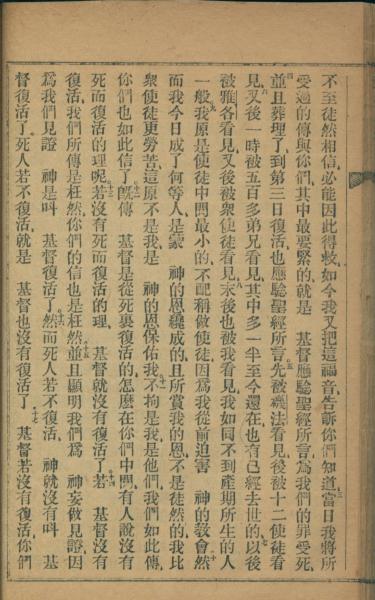 不至徒然相信、必能因此得救、如今我又把這福音、告訴你們知道、當日我將所
受過的傳與你們、其中最要緊的就是 基督應驗聖經所言、爲我們的罪受死、
並且葬埋了、到第三日復活、也應驗聖經所言、先被磯法看見、後被十二使徒看
見、又後一時被五百多弟兄看見、其中多一半至今還在、也有已經去世的、以後
被雅各看見、又後被衆使徒看見、末後也被我看見、我如同不到產期所生的人
一般、我原是使徒中間最小的、不配稱做使徒、因爲我從前迫害 神的敎會、然
而我今日成了何等人、是蒙 神的恩纔成的、且所賞我的恩、不是徒然的、我比
衆使徒更勞苦、這原不是我、是 神的恩保佑我、不拘是我、是他們、我們如此傳、
你們也如此信了、旣傳 基督是從死裏復活的、怎麽在你們中間、有人說沒有
死而復活的理呢、若沒有死而復活的理、 基督就沒有復活了、若 基督沒有
復活、我們所傳是枉然、你們的信也是枉然、並且顯明我們爲 神妄做見證、因
爲我們見證 神是叫 基督復活了、然而死人若不復活、 神就沒有叫 基
督復活了、死人若不復活、就是 基督也沒有復活了、 基督若沒有復活、你們